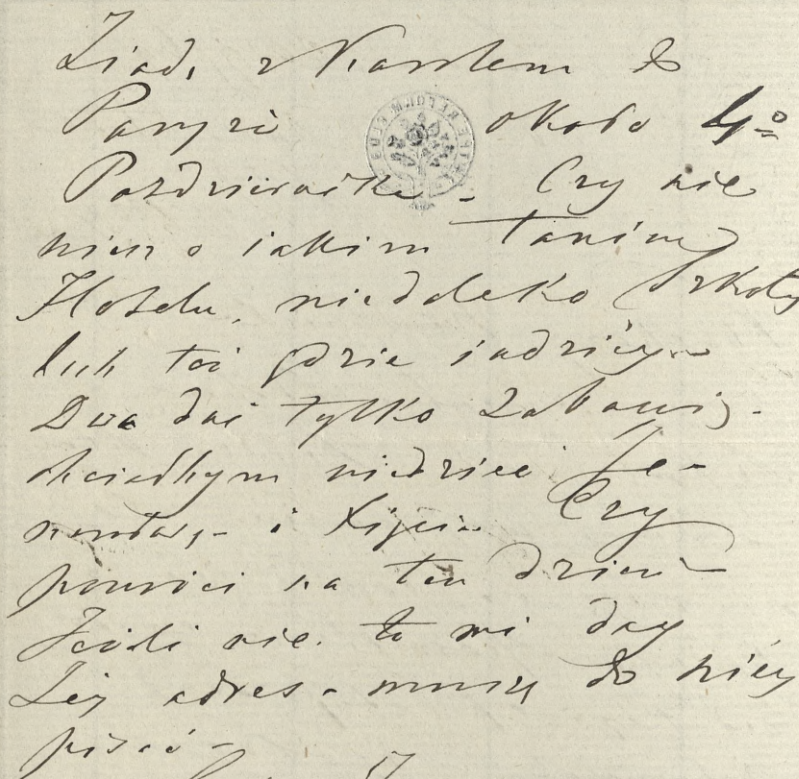 Zjadę z Karolem do
Paryża około 4º
Października - Czy nie
wiesz o jakim tanim
Hotelu, niedaleko Szkoły
lub też gdzie indziéy -
Dwa dni tylko zabawię -
chciałbym widzieć Je-
nerałową - i Xięcia. Czy
powróci na ten dzień -
Jeśli nie. to mi day
Jéy adres - muszę do niéy
pisać -